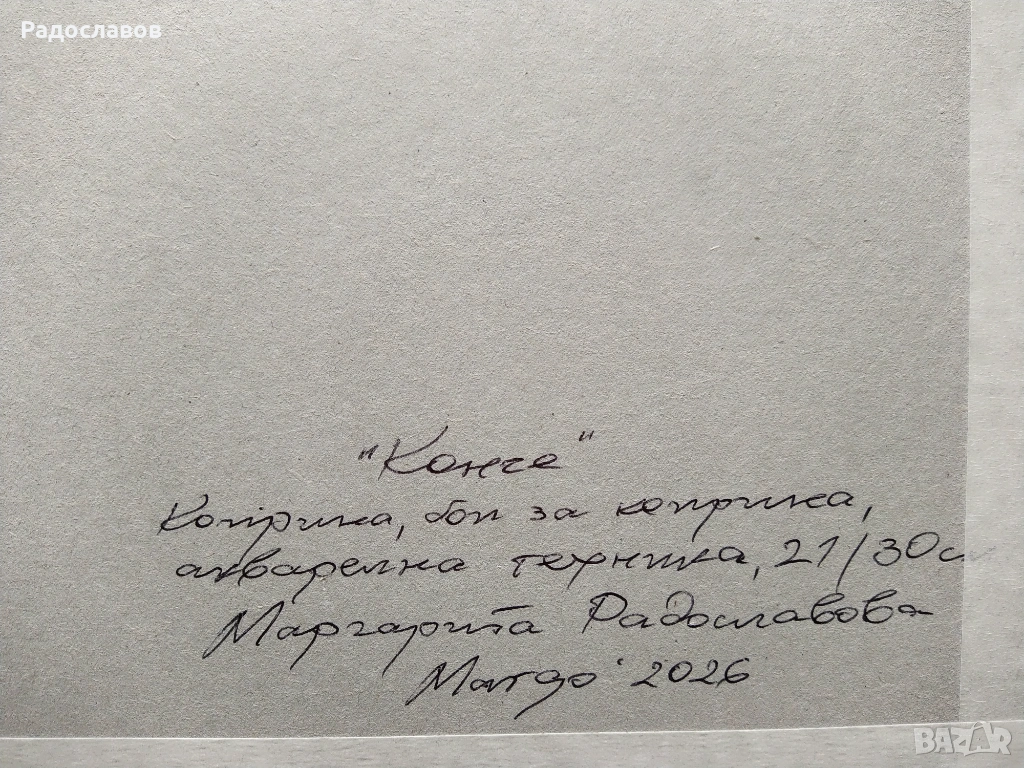 Радославов
"Конче"
Коприна, бои за коприна,
акварелна техника, 21/30см
Маргарита Радославова
2026
BAZAR